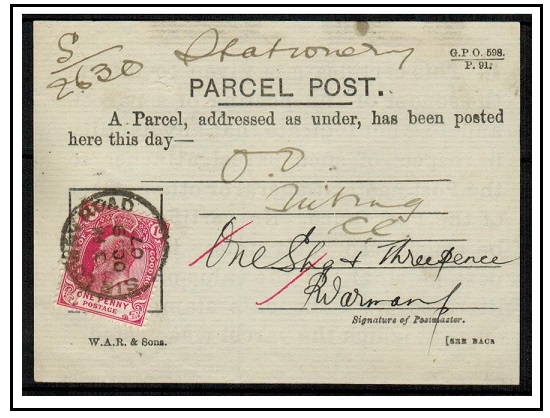 S/2630
Stationery
G.P.O. 598.
P. 91.
PARCEL POST.
A Parcel, addressed as under, has been posted
here this day—
ROAD
OF GOOD HOPE
ONE PENNY
POSTAGE
One Shg & Threepence
Signature of Postmaster.
W.A.R. & Sons.
[SEE BACK